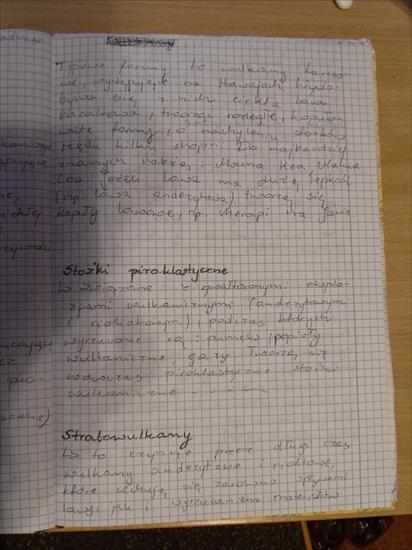 Typowe formy to wulkany tarczo-
we, występujące na Hawajach. Wydo-
bywa się z nich ciekła lawa
bazaltowa, tworząc rozległe, kopuło-
wate formy, o nachyleniu stoków
rzędu kilku stopni. Do najbardziej
znanych należą: Mauna Kea, Mauna
Loa. Jeżeli lawa ma dużą lepkość
(np. lawa andezytowa) tworzą się
kopuły lawowe, np. Merapi na Jawie.
Stożki piroklastyczne
↳ związane z gwałtownymi eksplo-
zjami wulkanicznymi (andezytowymi
i riolitowymi), podczas których
wyrzucane są: pumeks, popioły
wulkaniczne, gazy. Tworzą się
wówczas piroklastyczne stożki
wulkaniczne
Stratowulkany
↳ to czynne przez długi czas
wulkany andezytowe i riolitowe,
które cechują się zarówno spływami
lawy, jak i wyrzucaniem materiałów